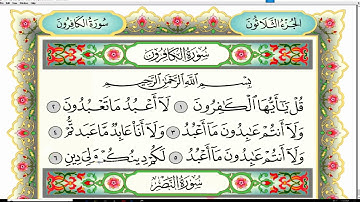 الجزء الثلاثون
سورة الكافرون
سُورَةُ الكَافِرُونَ
بِسْمِ اللَّهِ الرَّحْمَٰنِ الرَّحِيمِ
قُلْ يَٰٓأَيُّهَا ٱلْكَٰفِرُونَ ١ لَآ أَعْبُدُ مَا تَعْبُدُونَ ٢
وَلَآ أَنتُمْ عَٰبِدُونَ مَآ أَعْبُدُ ٣ وَلَآ أَنَا۠ عَابِدٌ مَّا عَبَدتُّمْ ٤
وَلَآ أَنتُمْ عَٰبِدُونَ مَآ أَعْبُدُ ٥ لَكُمْ دِينُكُمْ وَلِىَ دِينِ ٦
سُورَةُ النَّصْرِ